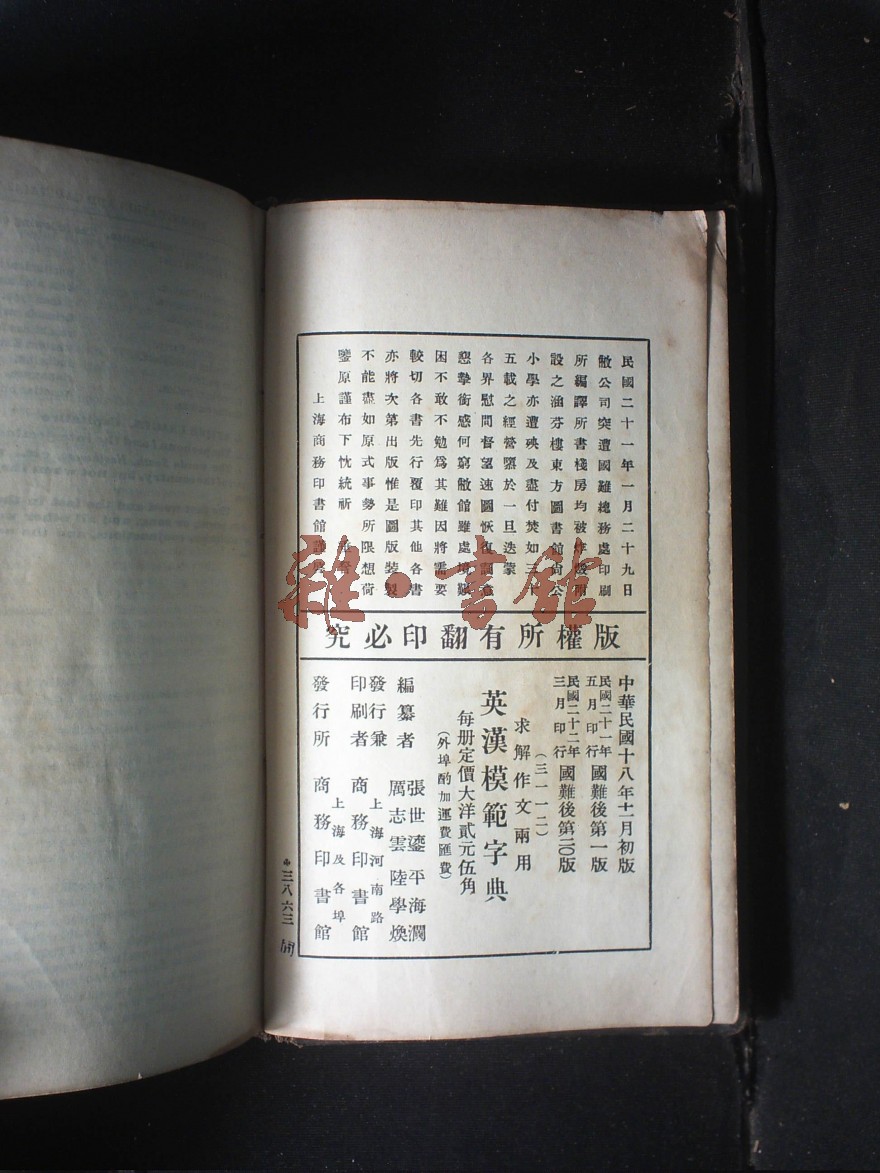 民國二十一年一月二十九日
敝公司突遭國難總務處印刷
所編譯所書棧房均被炸燬附
設之涵芬樓東方圖書館尚公
小學亦遭殃及盡付焚如三十
五載之經營墮於一旦迭蒙
各界慰問督望速圖恢復詞意
懇摯銜感何窮敝館雖處境艱
困不敢不勉爲其難因將需要
較切各書先行覆印其他各書
亦將次第出版惟是圖版裝製
不能盡如原式事勢所限想荷
鑒原謹布下忱統祈
上海商務印書館謹啟
雜·書館
版權所有翻印必究
中華民國十八年十一月初版
民國二十一年五月印行 國難後第一版
民國二十二年三月印行 國難後第二〇版
(三一一二)
求解作文兩用
英漢模範字典
每册定價大洋貳元伍角
(外埠酌加運費匯費)
編纂者 張世鎏 平海瀾 厲志雲 陸學煥
發行兼印刷者 上海河南路 商務印書館
發行所 上海及各埠 商務印書館
三八六三